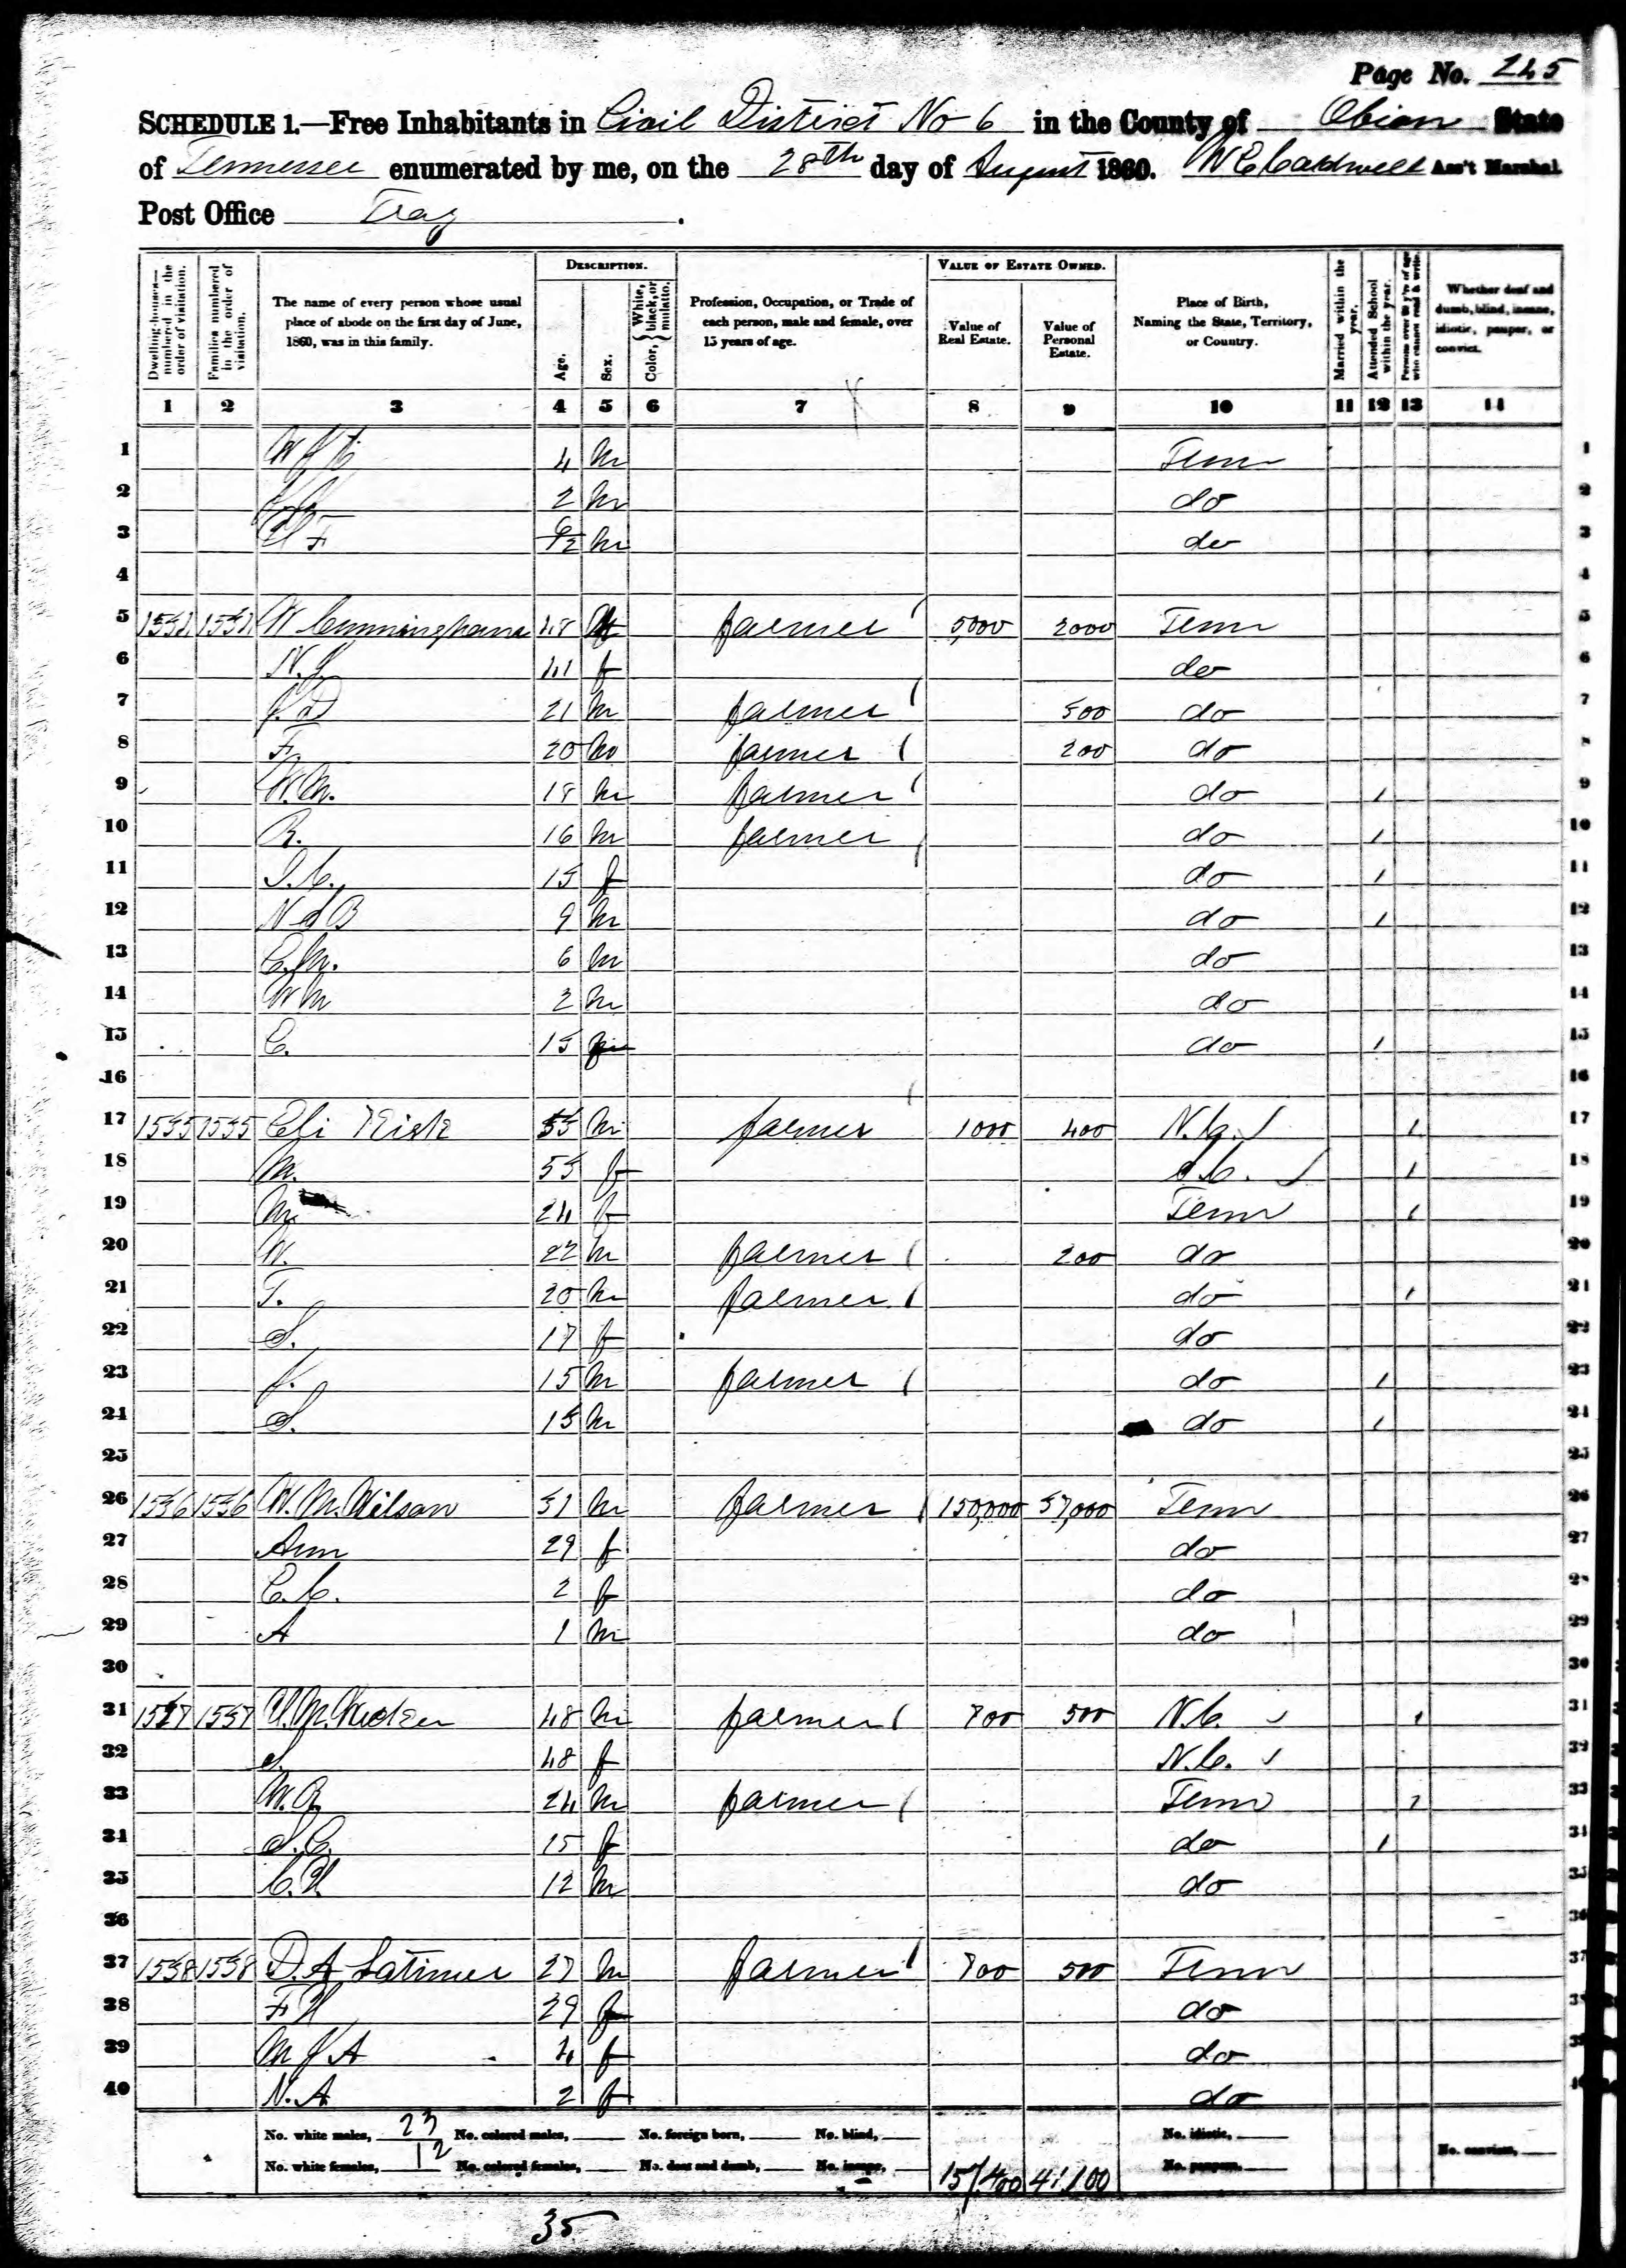 Page No. 245
SCHEDULE 1.—Free Inhabitants in Civil District No 6 in the County of Obion State
of Tennessee enumerated by me, on the 28th day of August 1860. N C Caldwell Ass't Marshal.
Post Office Troy.
Dwelling-houses—numbered in the order of visitation.
Families numbered in the order of visitation.
The name of every person whose usual place of abode on the first day of June, 1860, was in this family.
DESCRIPTION.
Age.
Sex.
Color, { White, black, or mulatto.
Profession, Occupation, or Trade of each person, male and female, over 15 years of age.
VALUE OF ESTATE OWNED.
Value of Real Estate.
Value of Personal Estate.
Place of Birth, Naming the State, Territory, or Country.
Married within the year.
Attended School within the year.
Persons over 20 y'rs of age who cannot read & write.
Whether deaf and dumb, blind, insane, idiotic, pauper, or convict.
1 2 3 4 5 6 7 8 9 10 11 12 13 14
1 4 m Tenn 1
2 2 m do 2
3 F 6/12 m do 3
4 4
5 W Cunningham 48 M farmer 5,000 2000 Tenn 5
6 N. J. 41 f do 6
7 21 m farmer 500 do 7
8 F. 20 m farmer 200 do 8
9 W.M. 18 m farmer do 1 9
10 R. 16 m farmer do 1 10
11 15 f do 1 11
12 N d B 9 m do 1 12
13 C.M. 6 m do 13
14 W m 2 m do 14
15 C. 15 do 1 15
16 16
17 1535 1535 Eli Kirk 55 m farmer 1000 400 1 17
18 M. 55 f S.C. 1 18
19 M. 24 f Tenn 1 19
20 W. 22 m farmer 200 do 20
21 T. 20 m farmer do 1 21
22 S. 17 f do 22
23 J. 15 m farmer do 1 23
24 S. 15 m do 1 24
25 25
26 1536 1536 W. M. Wilson 37 m farmer 150,000 37,000 Tenn 26
27 Ann 29 f do 27
28 C.C. 2 f do 28
29 A 1 m do 29
30 30
31 1537 1537 48 m farmer 700 500 N.C. 1 31
32 S. 48 f N.C. 32
33 24 m farmer Tenn 1 33
34 S.C. 15 f do 1 34
35 C.H. 12 m do 35
36 36
37 1538 1538 D. A Latimer 27 m farmer 700 500 Tenn 37
38 F H 29 f do 38
39 M J A 4 f do 39
40 N. A 2 f do 40
No. white males, 23 No. colored males, No. foreign born, No. blind, No. idiotic,
No. white females, 12 No. colored females, No. deaf and dumb, No. insane, 157,400 41,100 No. paupers, No. convicts,
35